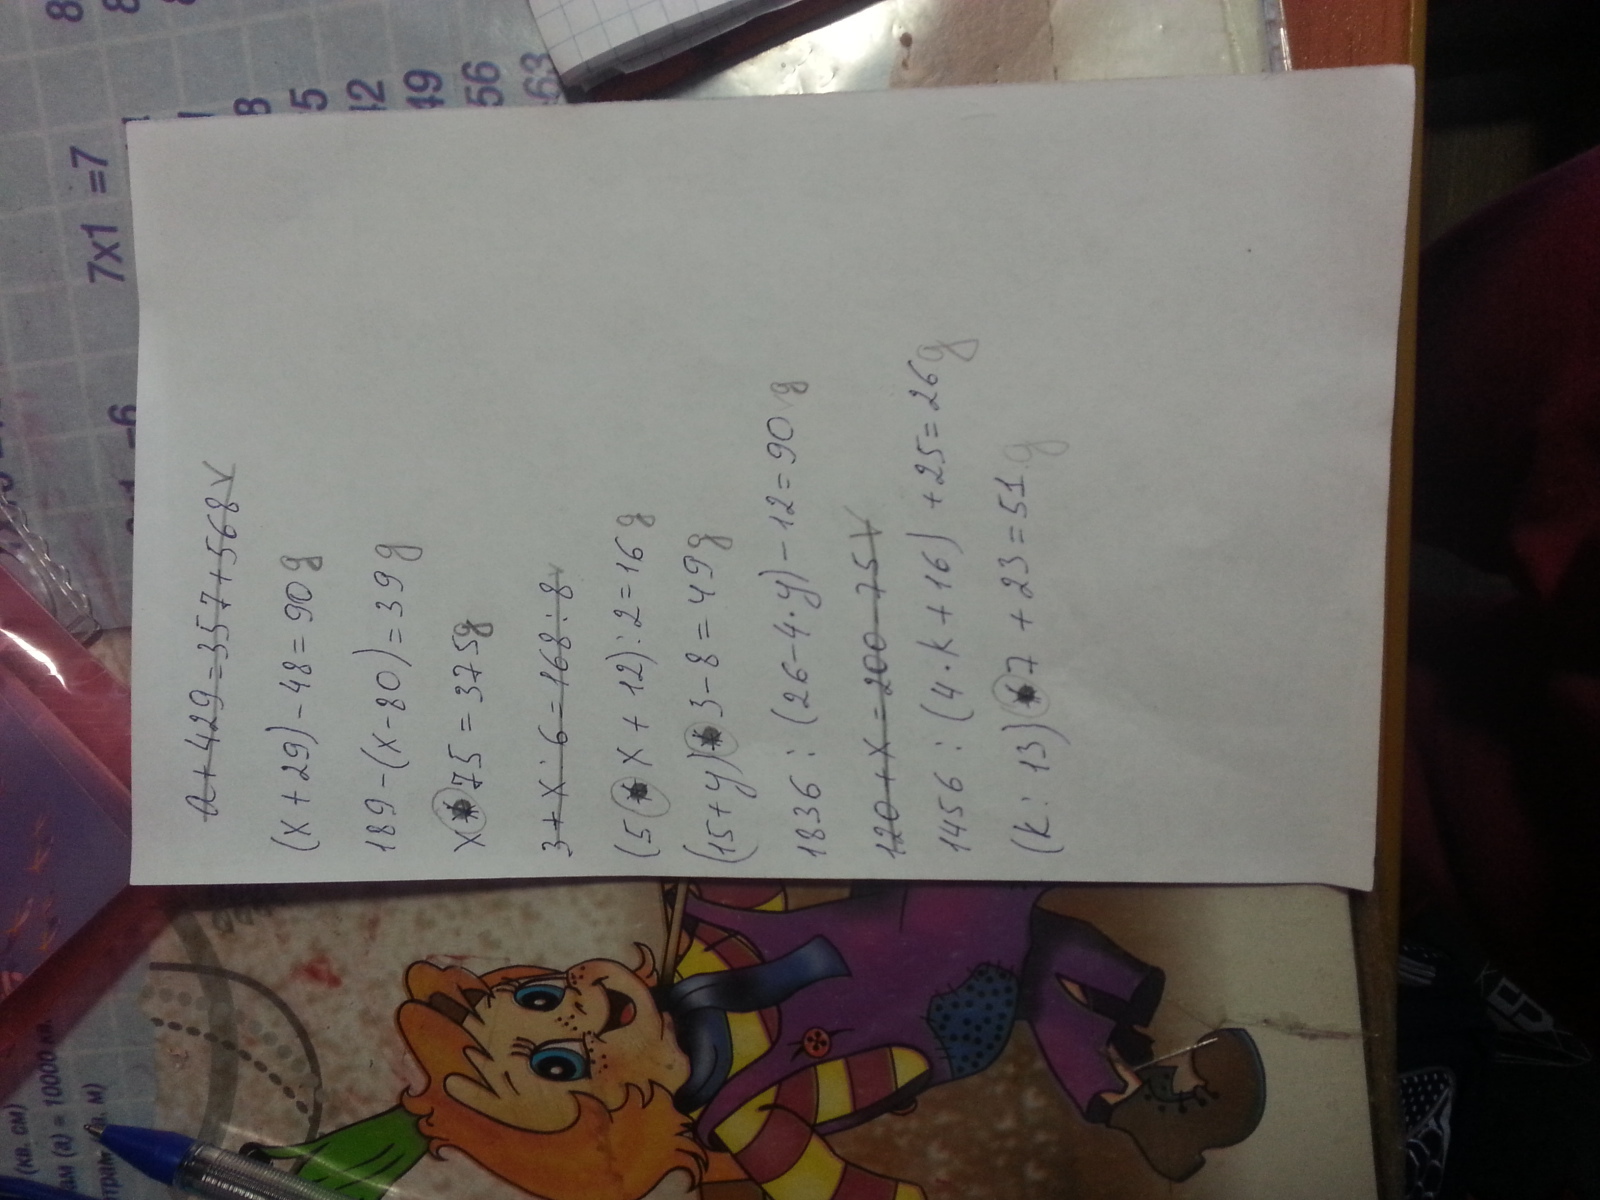 a+429=357+568 v
(x+29)-48=90 g
189-(x-80)=39 g
x*75=375 g
3+x:6=168:8 v
(5*x+12):2=16 g
(15+y)*3-8=49 g
1836:(26-4·y)-12=90 v g
120+x=200-75 v
1456:(4·k+16)+25=26 g
(k:13)*7+23=51 g
7x1 =7
49
56
63
(кв. см)
(а) = 10000 кв.
кв. м)